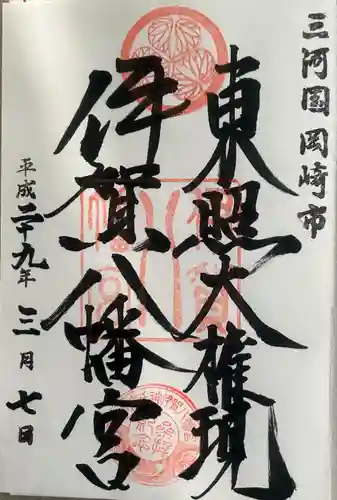 三河國岡崎市
東照大権現
伊賀八幡宮
平成二十九年三月七日
伊賀八幡宮